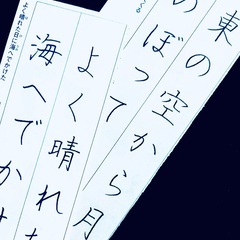 東の空から月
のぼって
くる
よく晴れた
海へでかけ
よく晴れた日に海へでかけた